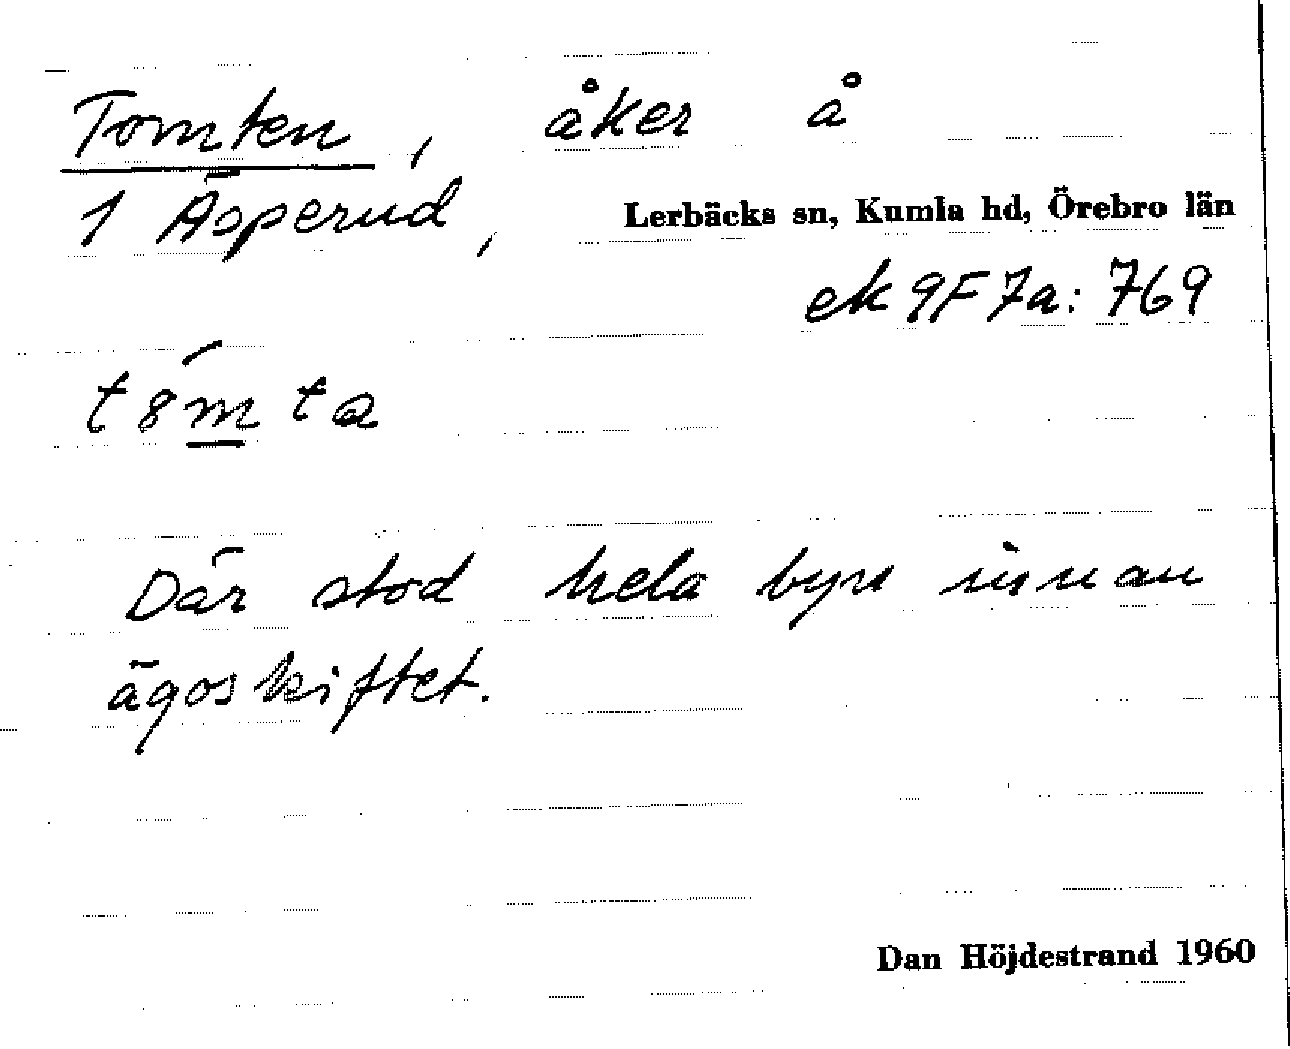 Tomten, åker å
1 Äsperud,
Lerbäcks sn, Kumla hd, Örebro län
ek 9F7a: 769
t8́m̲ta
Där stod hela byn innan
ägoskiftet.
Dan Höjdestrand 1960